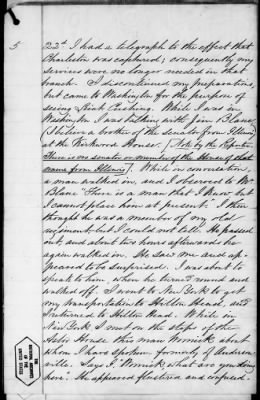 5
22d I had a telegraph to the effect that
Charleston was captured; consequently my
services were no longer needed in that
branch. I discontinued my preparations,
but came to Washington for the purpose of
seeing Dick Cushing. While I was in
Washington I was talking with Jim Blanc
(I believe a brother of the senator from Illinois)
at the Kirkwood House. [Note by the Reporter
There is no senator or member of the House of that
name from Illinois]. While in conversation,
a man walked in, and I observed to Mr
Blanc "There is a man that I know but
I cannot place him at present". I then
thought he was a member of my old
regiment but I could not tell. He passed
out, and about two hours afterwards he
again walked in. He saw me and ap-
peared to be surprised. I was about to
speak to him, when he turned round and
walked off. I went to New York & got
my transportation to Hilton Head, and
I returned to Hilton Head. While in
New York I met on the steps of the
Astor House this man Wornick about
whom I have spoken, formerly of Anderson-
ville. Says I, "Wornick, what are you doing
here". He appeared flustered and confused.